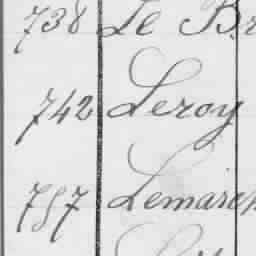 738 Le Br
742 Leroy
757 Lemarch